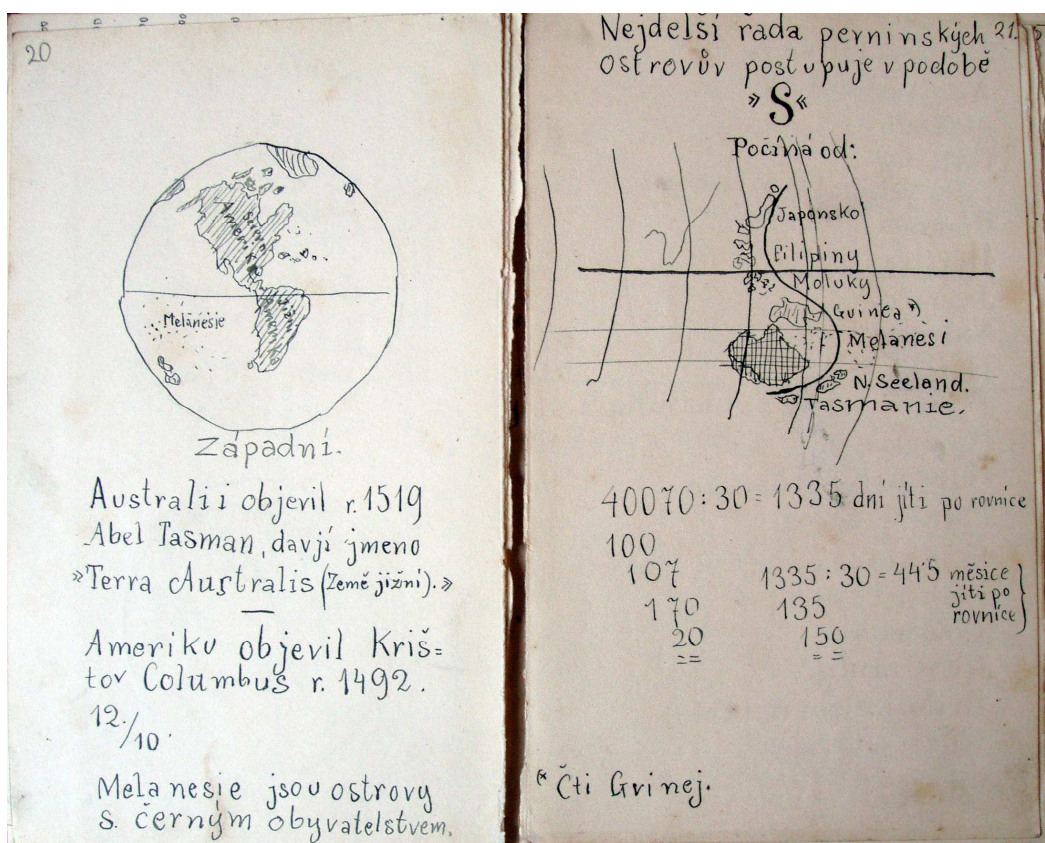 20
Severní
Amerika
Jižní
Melanesie
Západní.
Australii objevil r. 1519
Abel Tasman, davjí jmeno
»Terra Australis (Země jižní).»
Ameriku objevil Kriš=
tov Columbus r. 1492.
12./10.
Melanesie jsou ostrovy
s. černým obyvatelstvem.
21.
Nejdelší řada perninských
ostrovův postupuje v podobě
»S«
Počíná od:
Japonsko
Filipiny
Moluky
Gvinea *)
Melanesi
N. Seeland.
Tasmanie.
40070 : 30 = 1335 dní jíti po rovnice
100
107
170
20
1335 : 30 = 44·5 měsice
jíti po
rovnice
135
150
(* Čti Gvinej.